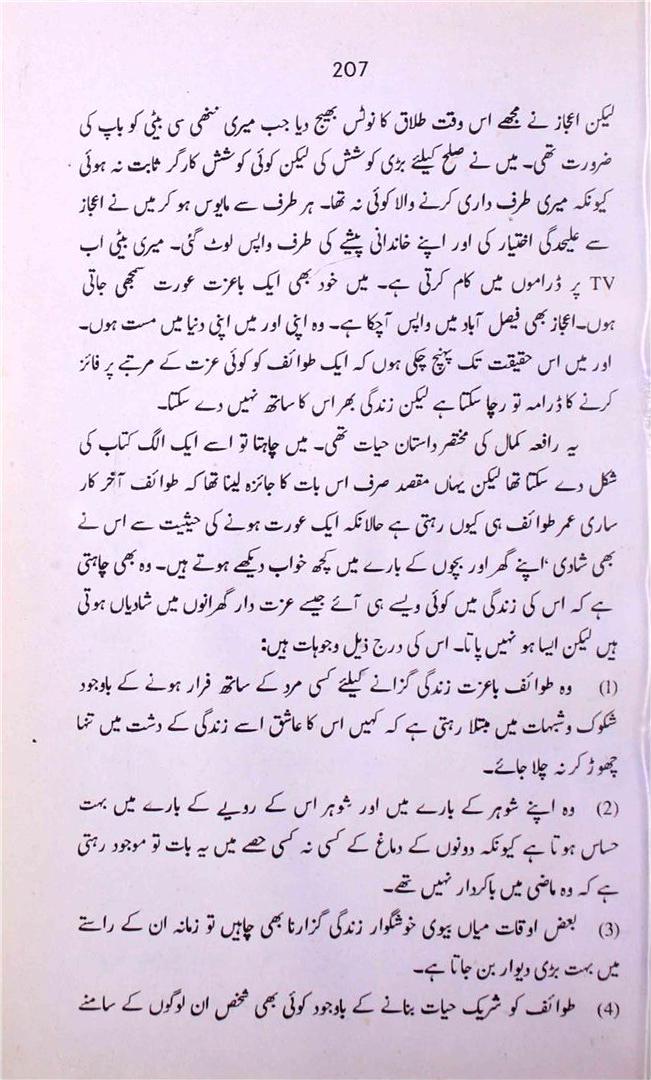 207
لیکن اعجاز نے مجھے اس وقت طلاق کا نوٹس بھیج دیا جب میری ننھی سی بیٹی کو باپ کی
ضرورت تھی۔ میں نے صلح کیلئے بڑی کوشش کی لیکن کوئی کوشش کارگر ثابت نہ ہوئی
کیونکہ میری طرف داری کرنے والا کوئی نہ تھا۔ ہر طرف سے مایوس ہو کر میں نے اعجاز
سے علیحدگی اختیار کی اور اپنے خاندانی پیشے کی طرف واپس لوٹ گئی۔ میری بیٹی اب
TV پر ڈراموں میں کام کرتی ہے۔ میں خود بھی ایک باعزت عورت سمجھی جاتی
ہوں۔ اعجاز بھی فیصل آباد میں واپس آچکا ہے۔ وہ اپنی اور میں اپنی دنیا میں مست ہوں۔
اور میں اس حقیقت تک پہنچ چکی ہوں کہ ایک طوائف کو کوئی عزت کے مرتبے پر فائز
کرنے کا ڈرامہ تو رچا سکتا ہے لیکن زندگی بھر اس کا ساتھ نہیں دے سکتا۔
یہ رافعہ کمال کی مختصر داستان حیات تھی۔ میں چاہتا تو اسے ایک الگ کتاب کی
شکل دے سکتا تھا لیکن یہاں مقصد صرف اس بات کا جائزہ لینا تھا کہ طوائف آخر کار
ساری عمر طوائف ہی کیوں رہتی ہے حالانکہ ایک عورت ہونے کی حیثیت سے اس نے
بھی شادی ‘ اپنے گھر اور بچوں کے بارے میں کچھ خواب دیکھے ہوتے ہیں۔ وہ بھی چاہتی
ہے کہ اس کی زندگی میں کوئی ویسے ہی آئے جیسے عزت دار گھرانوں میں شادیاں ہوتی
ہیں لیکن ایسا ہو نہیں پاتا۔ اس کی درج ذیل وجوہات ہیں:
(1) وہ طوائف باعزت زندگی گزانے کیلئے کسی مرد کے ساتھ فرار ہونے کے باوجود
شکوک و شبہات میں مبتلا رہتی ہے کہ کہیں اس کا عاشق اسے زندگی کے دشت میں تنہا
چھوڑ کر نہ چلا جائے۔
(2) وہ اپنے شوہر کے بارے میں اور شوہر اس کے رویے کے بارے میں بہت
حساس ہوتا ہے کیونکہ دونوں کے دماغ کے کسی نہ کسی حصے میں یہ بات تو موجود رہتی
ہے کہ وہ ماضی میں باکردار نہیں تھے۔
(3) بعض اوقات میاں بیوی خوشگوار زندگی گزارنا بھی چاہیں تو زمانہ ان کے راستے
میں بہت بڑی دیوار بن جاتا ہے۔
(4) طوائف کو شریک حیات بنانے کے باوجود کوئی بھی شخص ان لوگوں کے سامنے